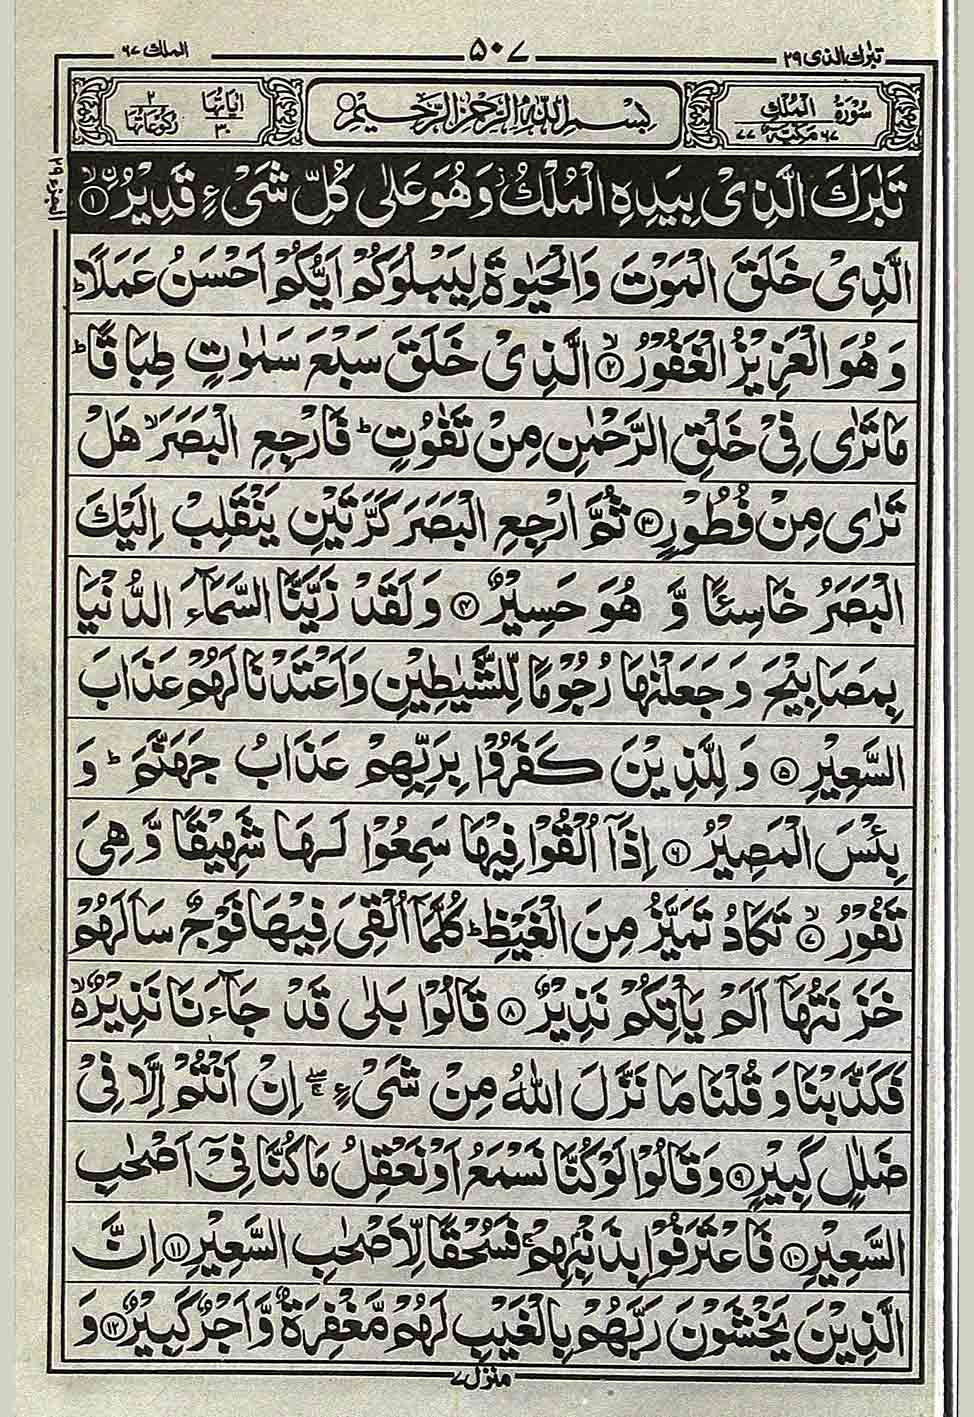 تبٰرك الذى ٢٩
٥٠٧
الملك ٦٧
سُوْرَةُ الْمُلْكِ
٦٧ مَكِّيَّةٌ ٧٧
بِسْمِ اللّٰهِ الرَّحْمٰنِ الرَّحِيْمِ
اٰيَاتُهَا ٣٠
رُكُوْعَاتُهَا ٢
تَبٰرَكَ الَّذِىْ بِيَدِهِ الْمُلْكُ ز وَهُوَ عَلٰى كُلِّ شَىْءٍ قَدِيْرُ ۨ ﴿١﴾ۙ
الَّذِىْ خَلَقَ الْمَوْتَ وَالْحَيٰوةَ لِيَبْلُوَكُمْ اَيُّكُمْ اَحْسَنُ عَمَلًا ؕ
وَهُوَ الْعَزِيْزُ الْغَفُوْرُ ﴿٢﴾ۙ الَّذِىْ خَلَقَ سَبْعَ سَمٰوٰتٍ طِبَاقًا ؕ
مَا تَرٰى فِىْ خَلْقِ الرَّحْمٰنِ مِنْ تَفٰوُتٍ ؕ فَارْجِعِ الْبَصَرَ ۙ هَلْ
تَرٰى مِنْ فُطُوْرٍ ﴿٣﴾ ثُمَّ ارْجِعِ الْبَصَرَ كَرَّتَيْنِ يَنْقَلِبْ اِلَيْكَ
الْبَصَرُ خَاسِئًا وَّ هُوَ حَسِيْرٌ ﴿٤﴾ وَلَقَدْ زَيَّنَّا السَّمَآءَ الدُّنْيَا
بِمَصَابِيْحَ وَجَعَلْنٰهَا رُجُوْمًا لِّلشَّيٰطِيْنِ وَاَعْتَدْنَا لَهُمْ عَذَابَ
السَّعِيْرِ ﴿٥﴾ وَلِلَّذِيْنَ كَفَرُوْا بِرَبِّهِمْ عَذَابُ جَهَنَّمَ ؕ وَ
بِئْسَ الْمَصِيْرُ ﴿٦﴾ اِذَآ اُلْقُوْا فِيْهَا سَمِعُوْا لَهَا شَهِيْقًا وَّهِىَ
تَفُوْرُ ﴿٧﴾ۙ تَكَادُ تَمَيَّزُ مِنَ الْغَيْظِ ؕ كُلَّمَآ اُلْقِىَ فِيْهَا فَوْجٌ سَاَلَهُمْ
خَزَنَتُهَآ اَلَمْ يَاْتِكُمْ نَذِيْرٌ ﴿٨﴾ قَالُوْا بَلٰى قَدْ جَآءَنَا نَذِيْرٌ ۙ
فَكَذَّبْنَا وَقُلْنَا مَا نَزَّلَ اللّٰهُ مِنْ شَىْءٍ ۚۖ اِنْ اَنْتُمْ اِلَّا فِىْ
ضَلٰلٍ كَبِيْرٍ ﴿٩﴾ وَقَالُوْا لَوْ كُنَّا نَسْمَعُ اَوْ نَعْقِلُ مَا كُنَّا فِىْٓ اَصْحٰبِ
السَّعِيْرِ ﴿١٠﴾ فَاعْتَرَفُوْا بِذَنْبِهِمْ ۚ فَسُحْقًا لِّاَصْحٰبِ السَّعِيْرِ ﴿١١﴾ اِنَّ
الَّذِيْنَ يَخْشَوْنَ رَبَّهُمْ بِالْغَيْبِ لَهُمْ مَّغْفِرَةٌ وَّاَجْرٌ كَبِيْرٌ ﴿١٢﴾ وَ
منزل ٧